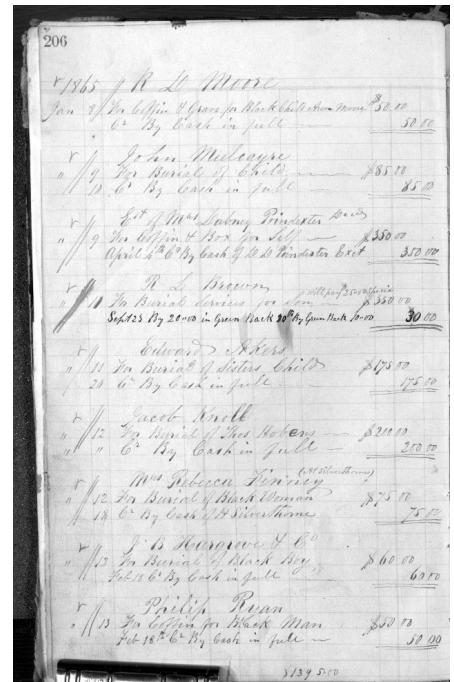 206
1865 R D Moore
Jan 8 For Coffin & Grave for Black Child $50.00
Cr By Cash in full 50 00
John Mulcayre
" 9 For Burial of Child $85.00
10 Cr By Cash in full 85 00
Est of Mrs Dabney Poindexter Decd
" 9 For Coffin & Box for Self $350 00
April 4th Cr By Cash of Poindexter Exct 350.00
R L Brown
" 11 For Burial Services for Son $350 00
Sept 23 By 20-00 in Green Back 30th By Green Back 10-00 30 00
Edward Akers
" 11 For Burial of Sisters Child $175 00
24 Cr By Cash in full 175 00
Jacob Knoll
" 12 For Burial of Thos Hobens $200 00
" " Cr By Cash in full 200 00
(H Silverthorne)
Mrs Rebecca
" 12 For Burial of Black Woman $75 00
18 Cr By Cash of H Silverthorne 75 00
J B Hargrove & Co
" 13 For Burial of Black Boy $60 00
Feb 18 Cr By Cash in full 60 00
Philip Ryan
" 13 For Coffin for Black Man $50 00
Feb 18th Cr By Cash in full 50 00
$1395-00